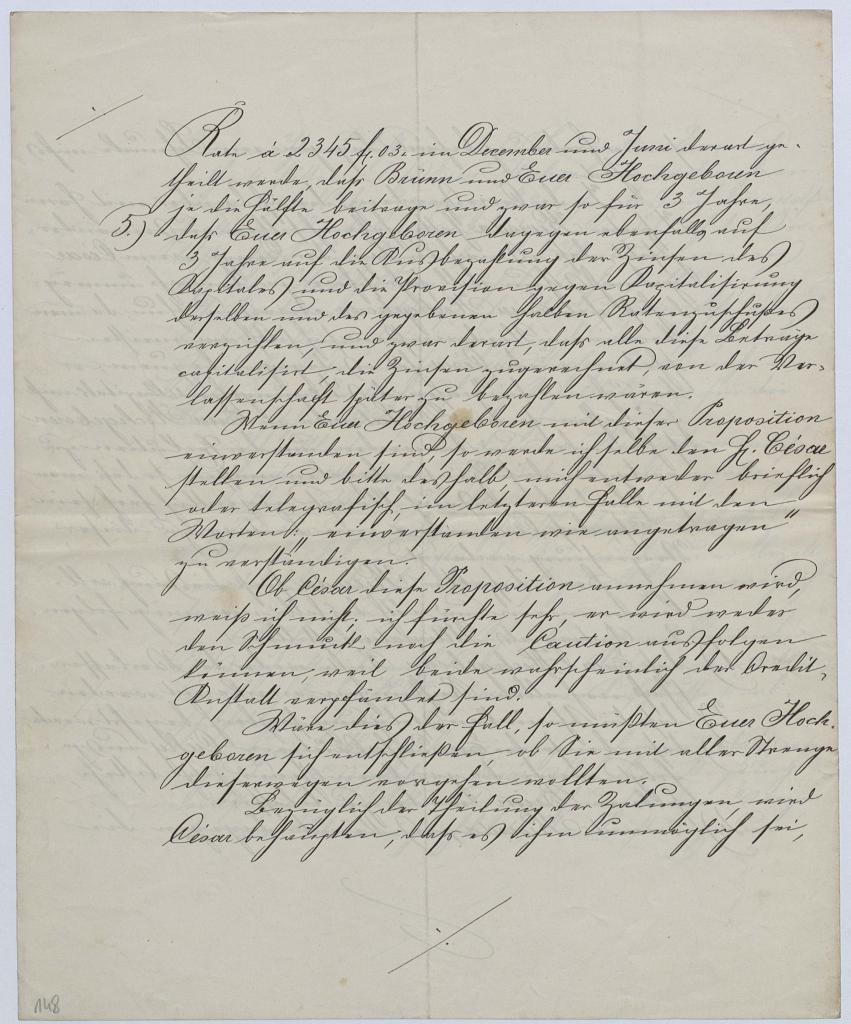 ./.
Rate á 2345 fl. 03. im December und Juni derart ge-
theilt werde, daß Brünn und Euer Hochgeboren
je die Hälfte beitrage und zwar so für 3 Jahre,
5.) daß Euer Hochgeboren dagegen ebenfalls auf
3 Jahre auf die Ausbezahlung der Zinsen des
Kapitales und die Provision gegen Kapitalisirung
derselben und des gegebenen halben Ratenzuschußes
verzichten, und zwar derart, daß alle diese Beträge
capitalisirt, die Zinsen zugerechnet, von der Ver-
lassenschaft später zu bezahlen wären.
Wenn Euer Hochgeboren mit dieser Proposition
einverstanden sind, so werde ich selbe dem H. César
stellen und bitte deshalb, mich entweder brieflich
oder telegrafisch, im letzteren Falle mit den
Worten: „einverstanden wie angetragen"
zu verständigen.
Ob César diese Proposition annehmen wird,
weiß ich nicht; ich fürchte sehr, er wird weder
den Schmuck noch die Caution ausfolgen
können, weil beide wahrscheinlich der Credit-
Anstalt verpfändet sind.
Wäre dies der Fall, so müßten Euer Hoch-
geboren sich entschließen, ob Sie mit aller Strenge
dieserwegen vorgehen wollten.
Bezüglich der Theilung der Zalungen, wird
César behaupten, daß es ihm unmöglich sei,
./.
148